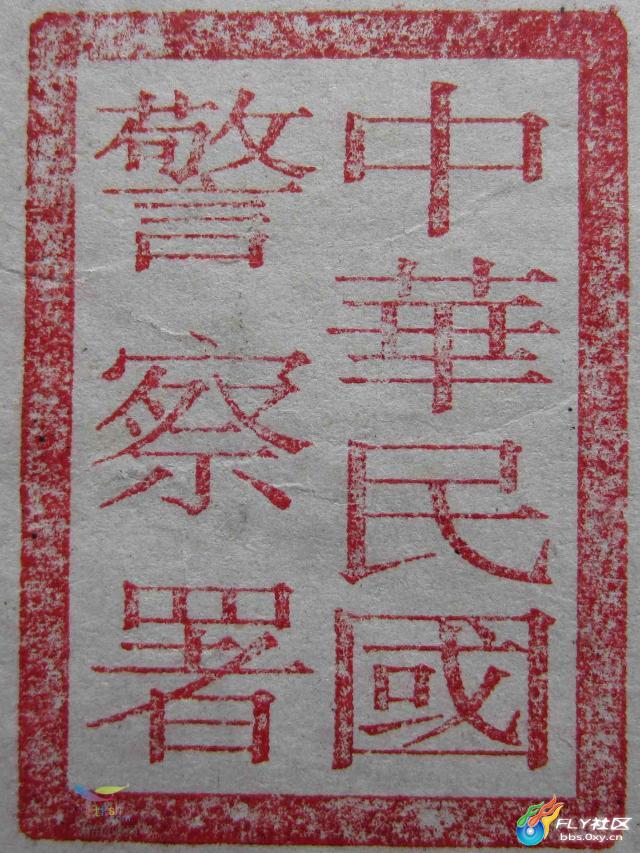 中華民國
警察署
FLY社区
bbs.0xy.cn